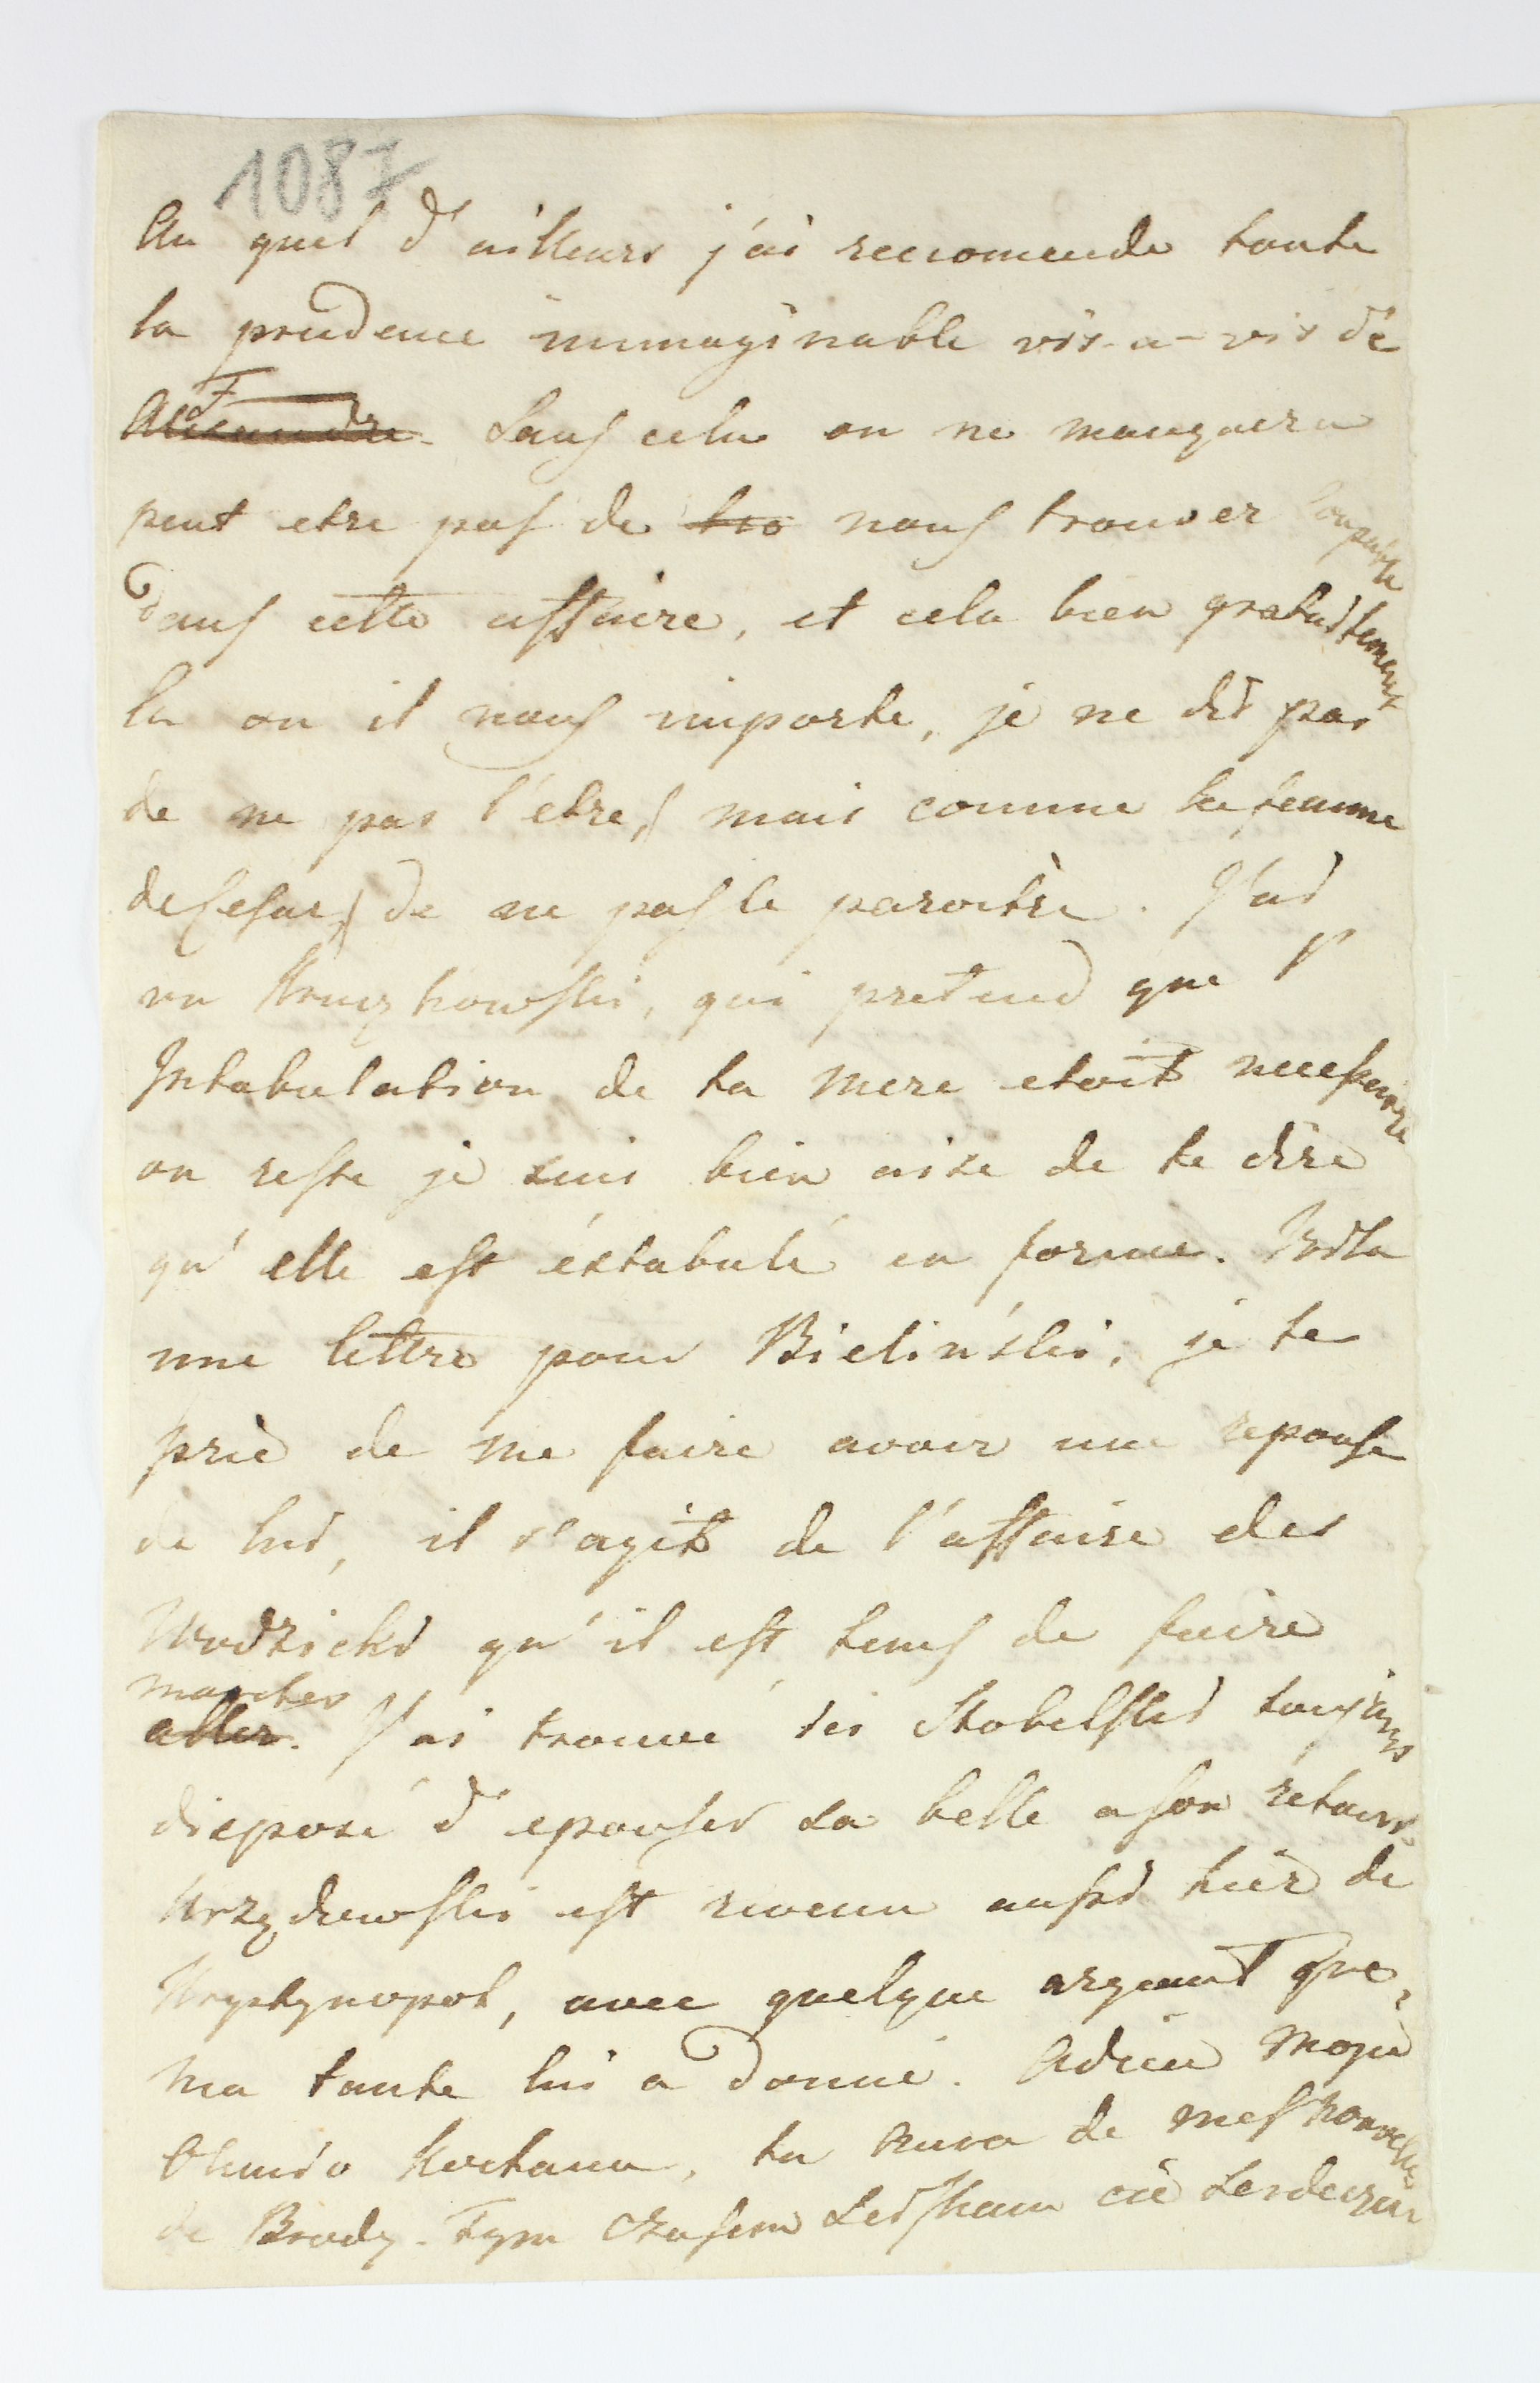 1087
Au quel d'ailleurs j'ai reccomende toute
la prudence immaginable vis-a-vis de
F
Alexandre. Sans cela on ne manquera
peut etre pas de tro nous trouver coupable
dans cette affaire, et cela bien gratuitement
la ou il nous importe, je ne dis pas
de ne pas l'etre, mais comme la femme
de Cesar, de ne pas le paroitre. J'ai
vu, qui pretend que l'
Intabulation de ta mere etoit necessaire
au reste je suis bien aise de te dire
qu'elle est éxtabulé en forme. Voila
une lettre pour Bieliński, je te
prie de me faire avoir une reponse
de lui, il s'agit de l'affaire des
Wodzicki qu'il est tems de faire
marcher
aller. J'ai trouvé ici Skobelski toujours
disposé d'epouser sa belle a son retour.
est revenu aussi hier de
Krystynopol, avec quelque argent que
ma tante lui a donné. Adieu moja
kochana, tu auras de mes nouvelles
de Brody. Tym czasem sciskam cie serdecznie